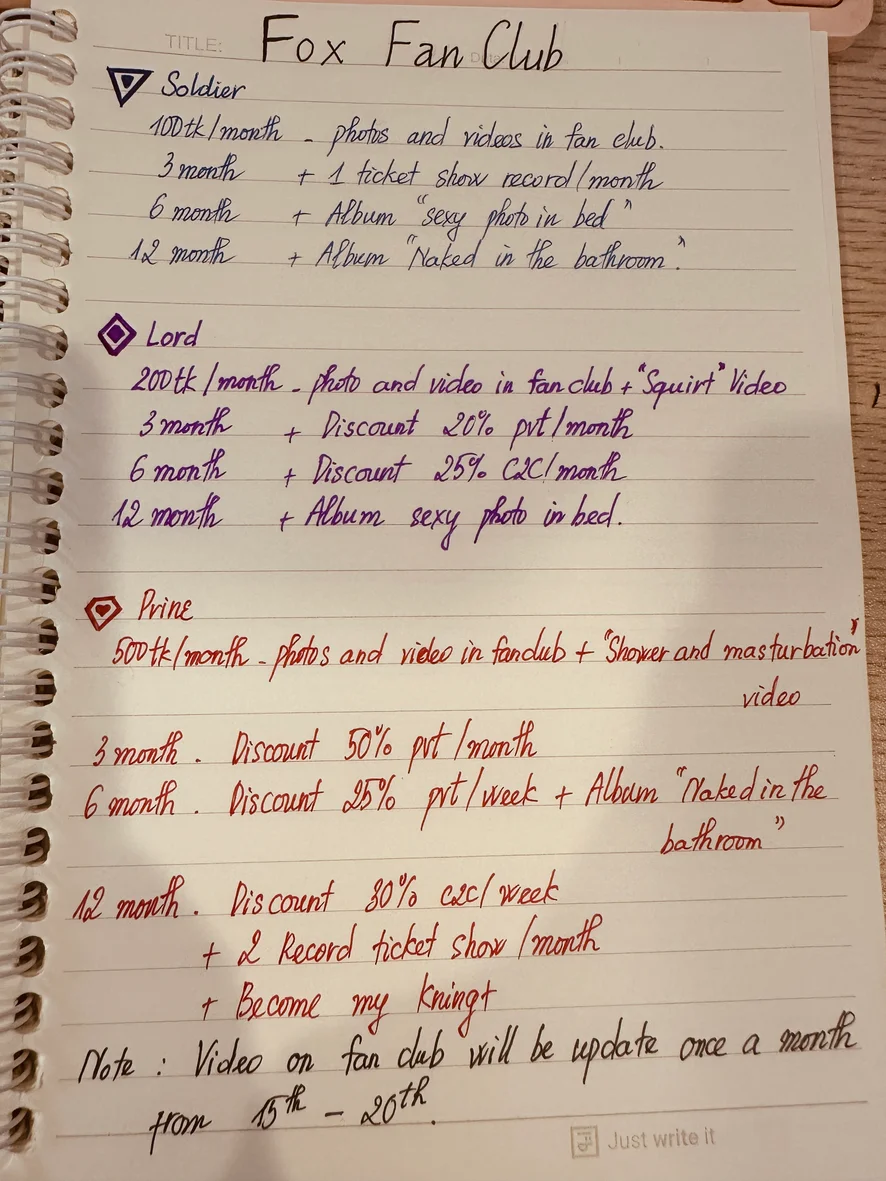 TITLE: Fox Fan Club
Soldier
100tk/month - photos and videos in fan club.
3 month + 1 ticket show record/month
6 month + Album "sexy photo in bed"
12 month + Album "Naked in the bathroom".
Lord
200tk/month - photo and video in fan club + "Squirt" Video
3 month + Discount 20% pvt/month
6 month + Discount 25% C2C/month
12 month + Album sexy photo in bed.
Prine
500tk/month - photos and video in fanclub + "Shower and masturbation"
video
3 month . Discount 50% pvt/month
6 month . Discount 25% pvt/week + Album "Naked in the
bathroom"
12 month . Discount 30% c2c/week
+ 2 Record ticket show/month
+ Become my kningt
Note : Video on fan club will be update once a month
from 15th - 20th.
Just write it